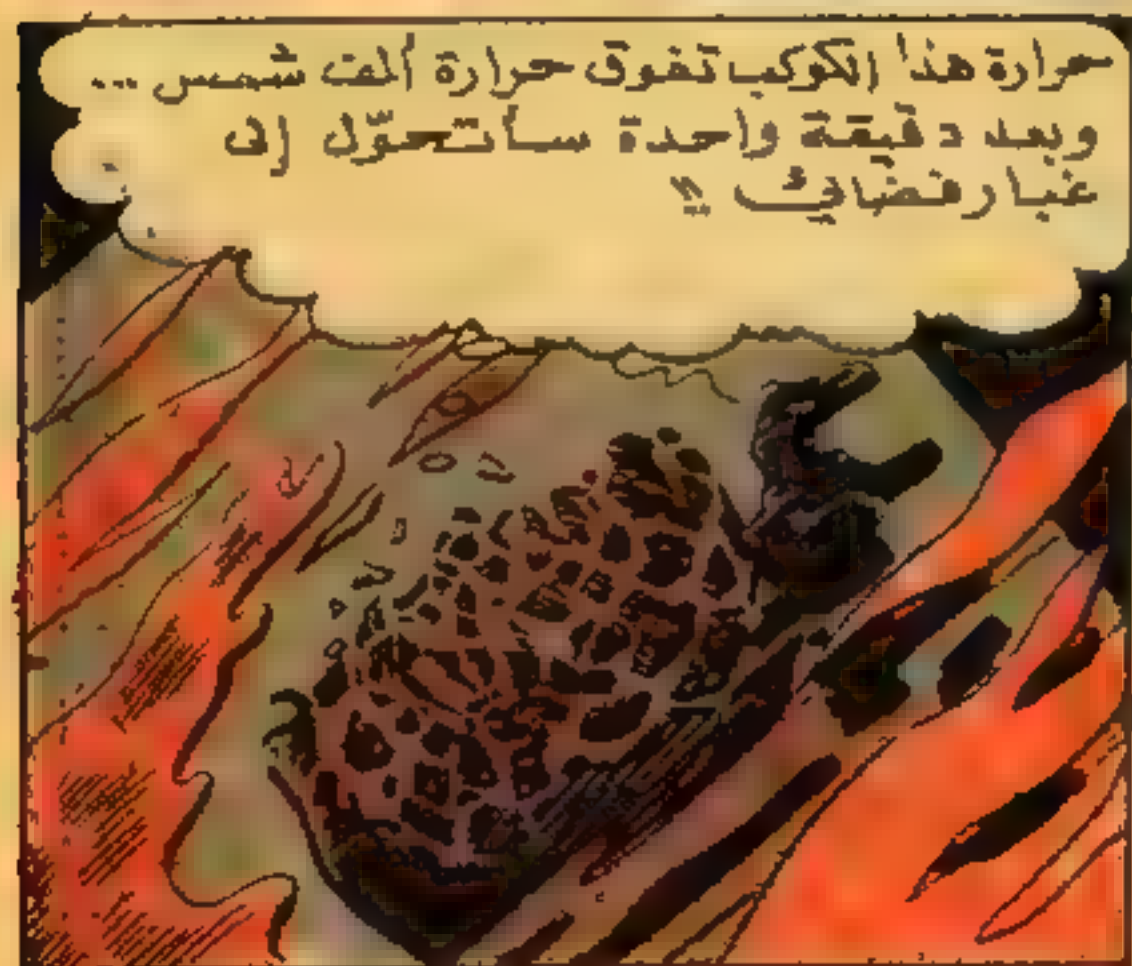 حرارة هذا الكوكب تفوق حرارة ألف شمس ...
وبعد دقيقة واحدة سأتحوّل إلى
غبار فضائي !!